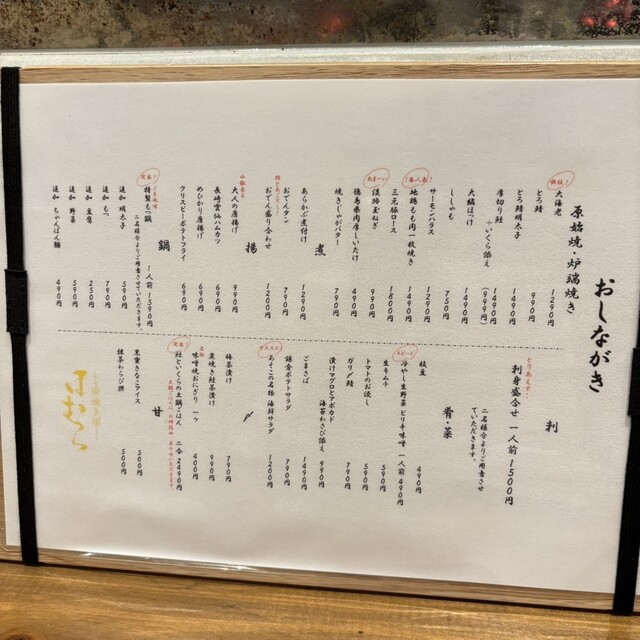 おしながき
原始焼・炉端焼き
徹底!
大海老 1290円
とろ鯖 990円
とろ鯖明太子 1490円
厚切り鮭 1490円
+いくら添え (999円)
大縞ほっけ 1490円
ししゃも 750円
サーモンハラス 1290円
一番人気!
地鶏もも肉一枚焼き 1490円
三元豚ロース 1800円
あま〜い
淡路玉ねぎ 990円
徳島県肉厚しいたけ 490円
焼きじゃがバター 790円
煮
あらかぶ煮付け 1290円
おでんタン 790円
おでん盛り合わせ 1200円
揚
大人の唐揚げ 990円
長崎雲仙ハムカツ 690円
めひかり唐揚げ 690円
クリスピーポテトフライ 690円
鍋
定番!
特製もつ鍋 一人前 1590円
二名様分よりご用意させていただきます。
追加 明太子 590円
追加 もつ 790円
追加 豆腐 250円
追加 野菜 590円
追加 ちゃんぽん麺 490円
刺
とりあえず…
刺身盛合せ 一人前 1500円
二名様分よりご用意させ
ていただきます。
肴・菜
枝豆 490円
スピード
冷やし生野菜 ピリ辛味噌 一人前 490円
生キムチ 590円
トマトのお浸し 590円
ガリ鯖 790円
漬けマグロとアボカド
海苔わさび添え 990円
ごまさば 1490円
鎌倉ポテトサラダ 790円
オススメ
あそこの名物 海鮮サラダ 1200円
〆
梅茶漬け 790円
炭焼き鮭茶漬け 990円
名物
味噌焼おにぎり 一ヶ 400円
定番!
鮭といくらの土鍋ごはん 二合 2490円
甘
黒蜜きなこアイス 500円
抹茶わらび餅 500円